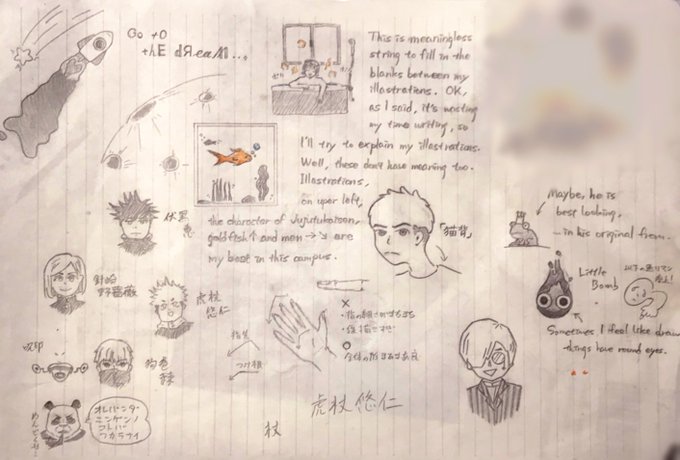 Go to
thE dЯeaM...
This is meaningless
string to fill in the
blanks between my
illustrations. OK,
as I said, it's wasting
my time writing, so
I'll try to explain my illustrations.
Well, these don't have meaning too.
Illustrations,
on uper left,
the character of Jujutukaisen,
goldfish↑ and men →↘ are
my best in this campus.
伏黒
恵
釘崎
野薔薇
虎杖
悠仁
呪印
狗巻
棘
めんどくせ
オレパンダ・
ニンゲンノ
コトバ
ワカラナイ
「猫背」
×
○
指先
つけ根
虎杖悠仁
杖
Maybe, he is
best looking,
in his original from.
Little
Bomb
Sometimes I feel like draw
things have round eyes.